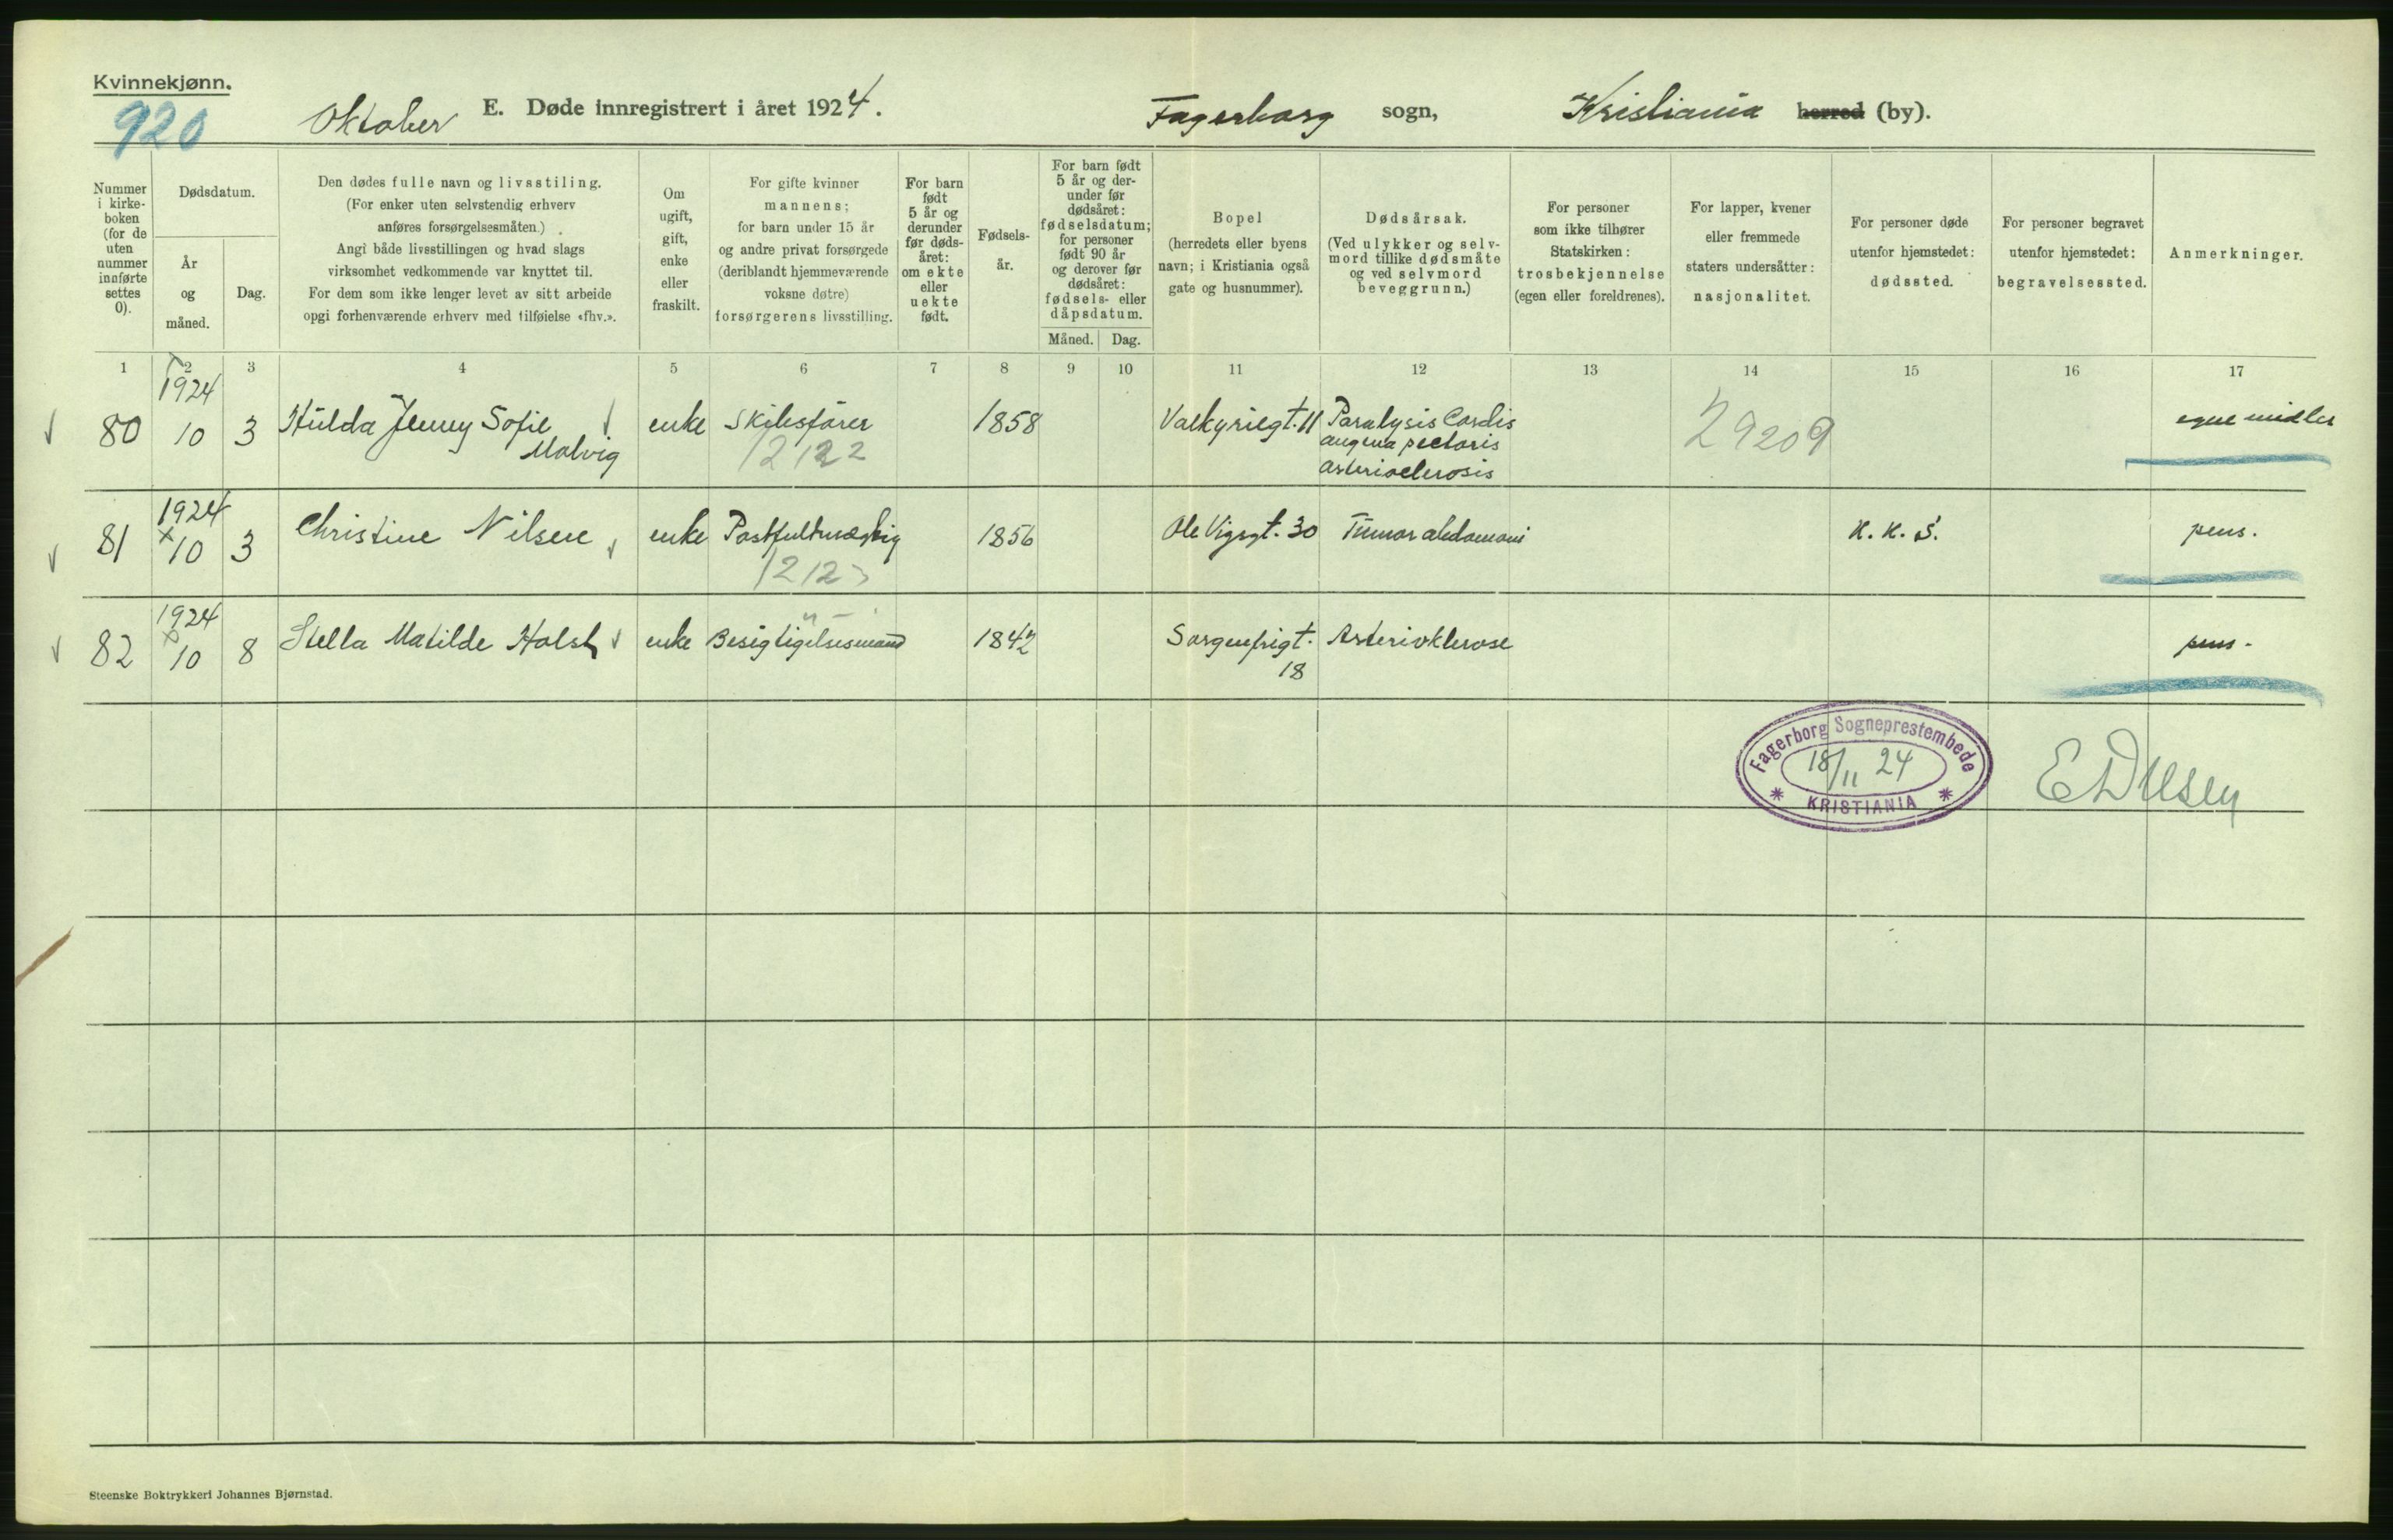 Kvinnekjønn.
920
Oktober E. Døde innregistrert i året 1924. Fagerborg sogn, Kristiania herred (by).
Nummer i kirke-boken (for de uten nummer innførte settes 0).
Dødsdatum.
År og måned.
Dag.
Den dødes fulle navn og livsstiling.
(For enker uten selvstendig erhverv
anføres forsørgelsesmåten.)
Angi både livsstillingen og hvad slags
virksomhet vedkommende var knyttet til.
For dem som ikke lenger levet av sitt arbeide
opgi forhenværende erhverv med tilføielse «fhv.».
Om ugift, gift, enke eller fraskilt.
For gifte kvinner
mannens;
for barn under 15 år
og andre privat forsørgede
(deriblandt hjemmeværende
voksne døtre)
forsørgerens livsstilling.
For barn født 5 år og derunder før døds-året: om ekte eller uekte født.
Fødsels-år.
For barn født
5 år og der-
under før
dødsåret:
fødselsdatum;
for personer
født 90 år
og derover før
dødsåret:
fødsels- eller
dåpsdatum.
Måned. Dag.
Bopel
(herredets eller byens
navn; i Kristiania også
gate og husnummer).
Dødsårsak.
(Ved ulykker og selv-
mord tillike dødsmåte
og ved selvmord
beveggrunn.)
For personer
som ikke tilhører
Statskirken:
trosbekjennelse
(egen eller foreldrenes).
For lapper, kvener
eller fremmede
staters undersåtter:
nasjonalitet.
For personer døde
utenfor hjemstedet:
dødssted.
For personer begravet
utenfor hjemstedet:
begravelsessted.
Anmerkninger.
1 2 3 4 5 6 7 8 9 10 11 12 13 14 15 16 17
1924
80 10 3 Hulda Jenny Sofie enke Skibsfører 1858 Valkyriegt. 11 Paralysis Cordis 29209 egne midler
Malvig 12122 angina pectoris
arteriosclerosis
1924
81 10 3 Christine Nilsen enke 1856 Ole Vigsgt. 30 Tumor abdomini K. K. S. pens.
1212
1924
82 10 8 Stella Matilde Holst enke Besigtigelsesmand 1842 Sorgenfrigt. Arterioklerose pens.
18
Fagerborg Sogneprestembede
18/11 24
KRISTIANIA
Steenske Boktrykkeri Johannes Bjørnstad.